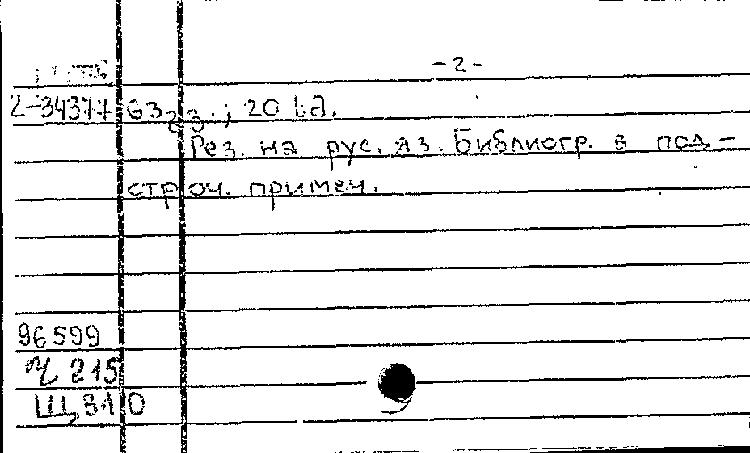 -2-
2-34377 63 23.; 20 ил.
Рез. на рус. яз. Библиогр. в под-
строч. примеч.
96599
Ч 215
Щ 310